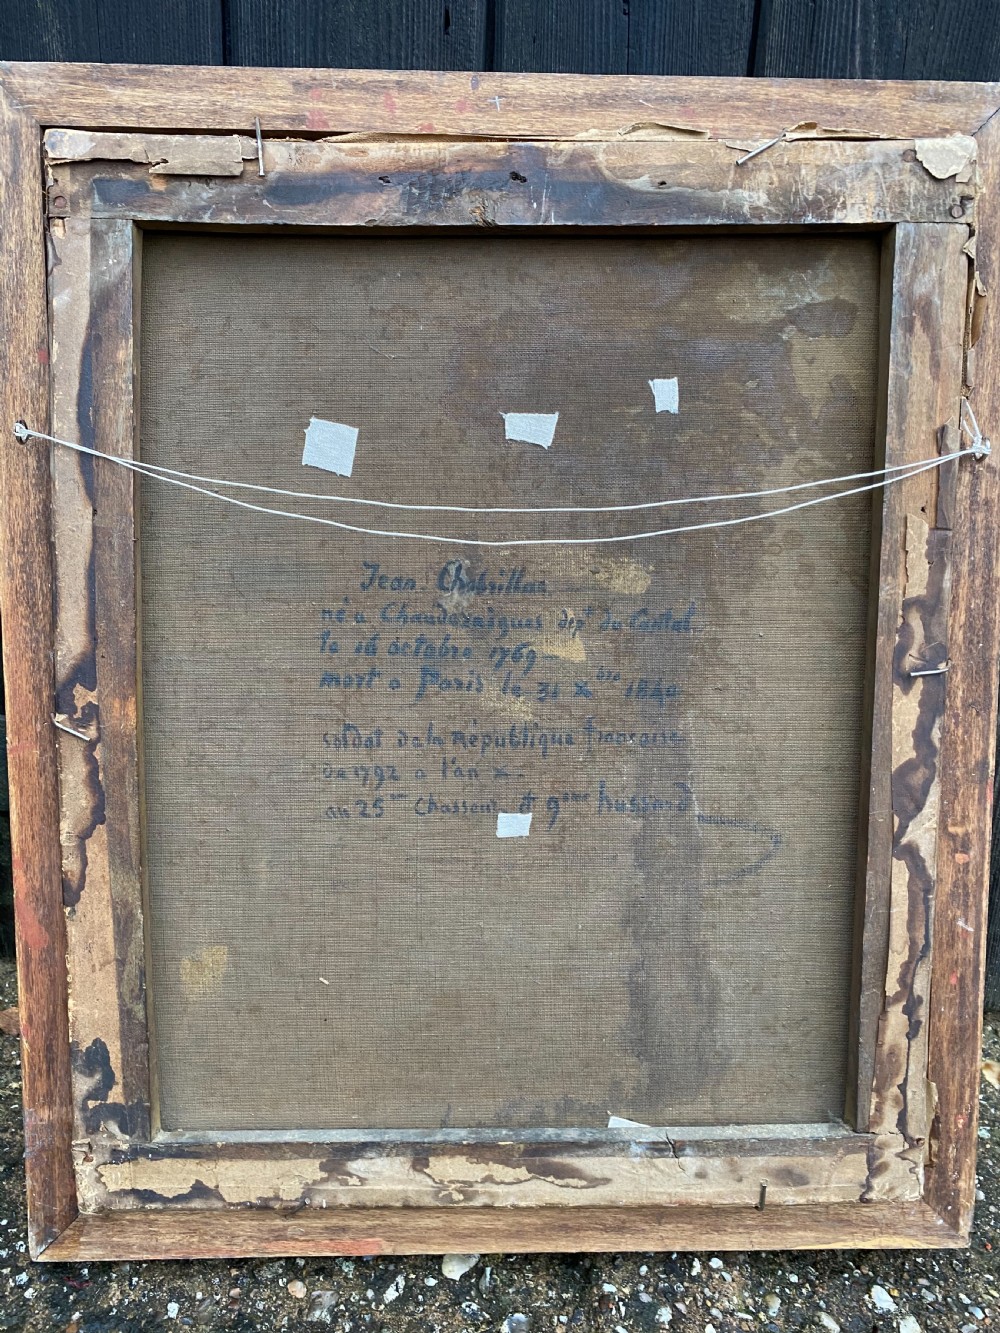 Jean Chabrillac
né a Chaudezaigues depᵗ du Cantal
le 16 octobre 1769
mort a Paris le 31 Xᵇʳᵉ 1840
soldat de la République française
de 1792 a l'an X.
au 25ᵐᵉ Chasseur et 9ᵉᵐᵉ hussard